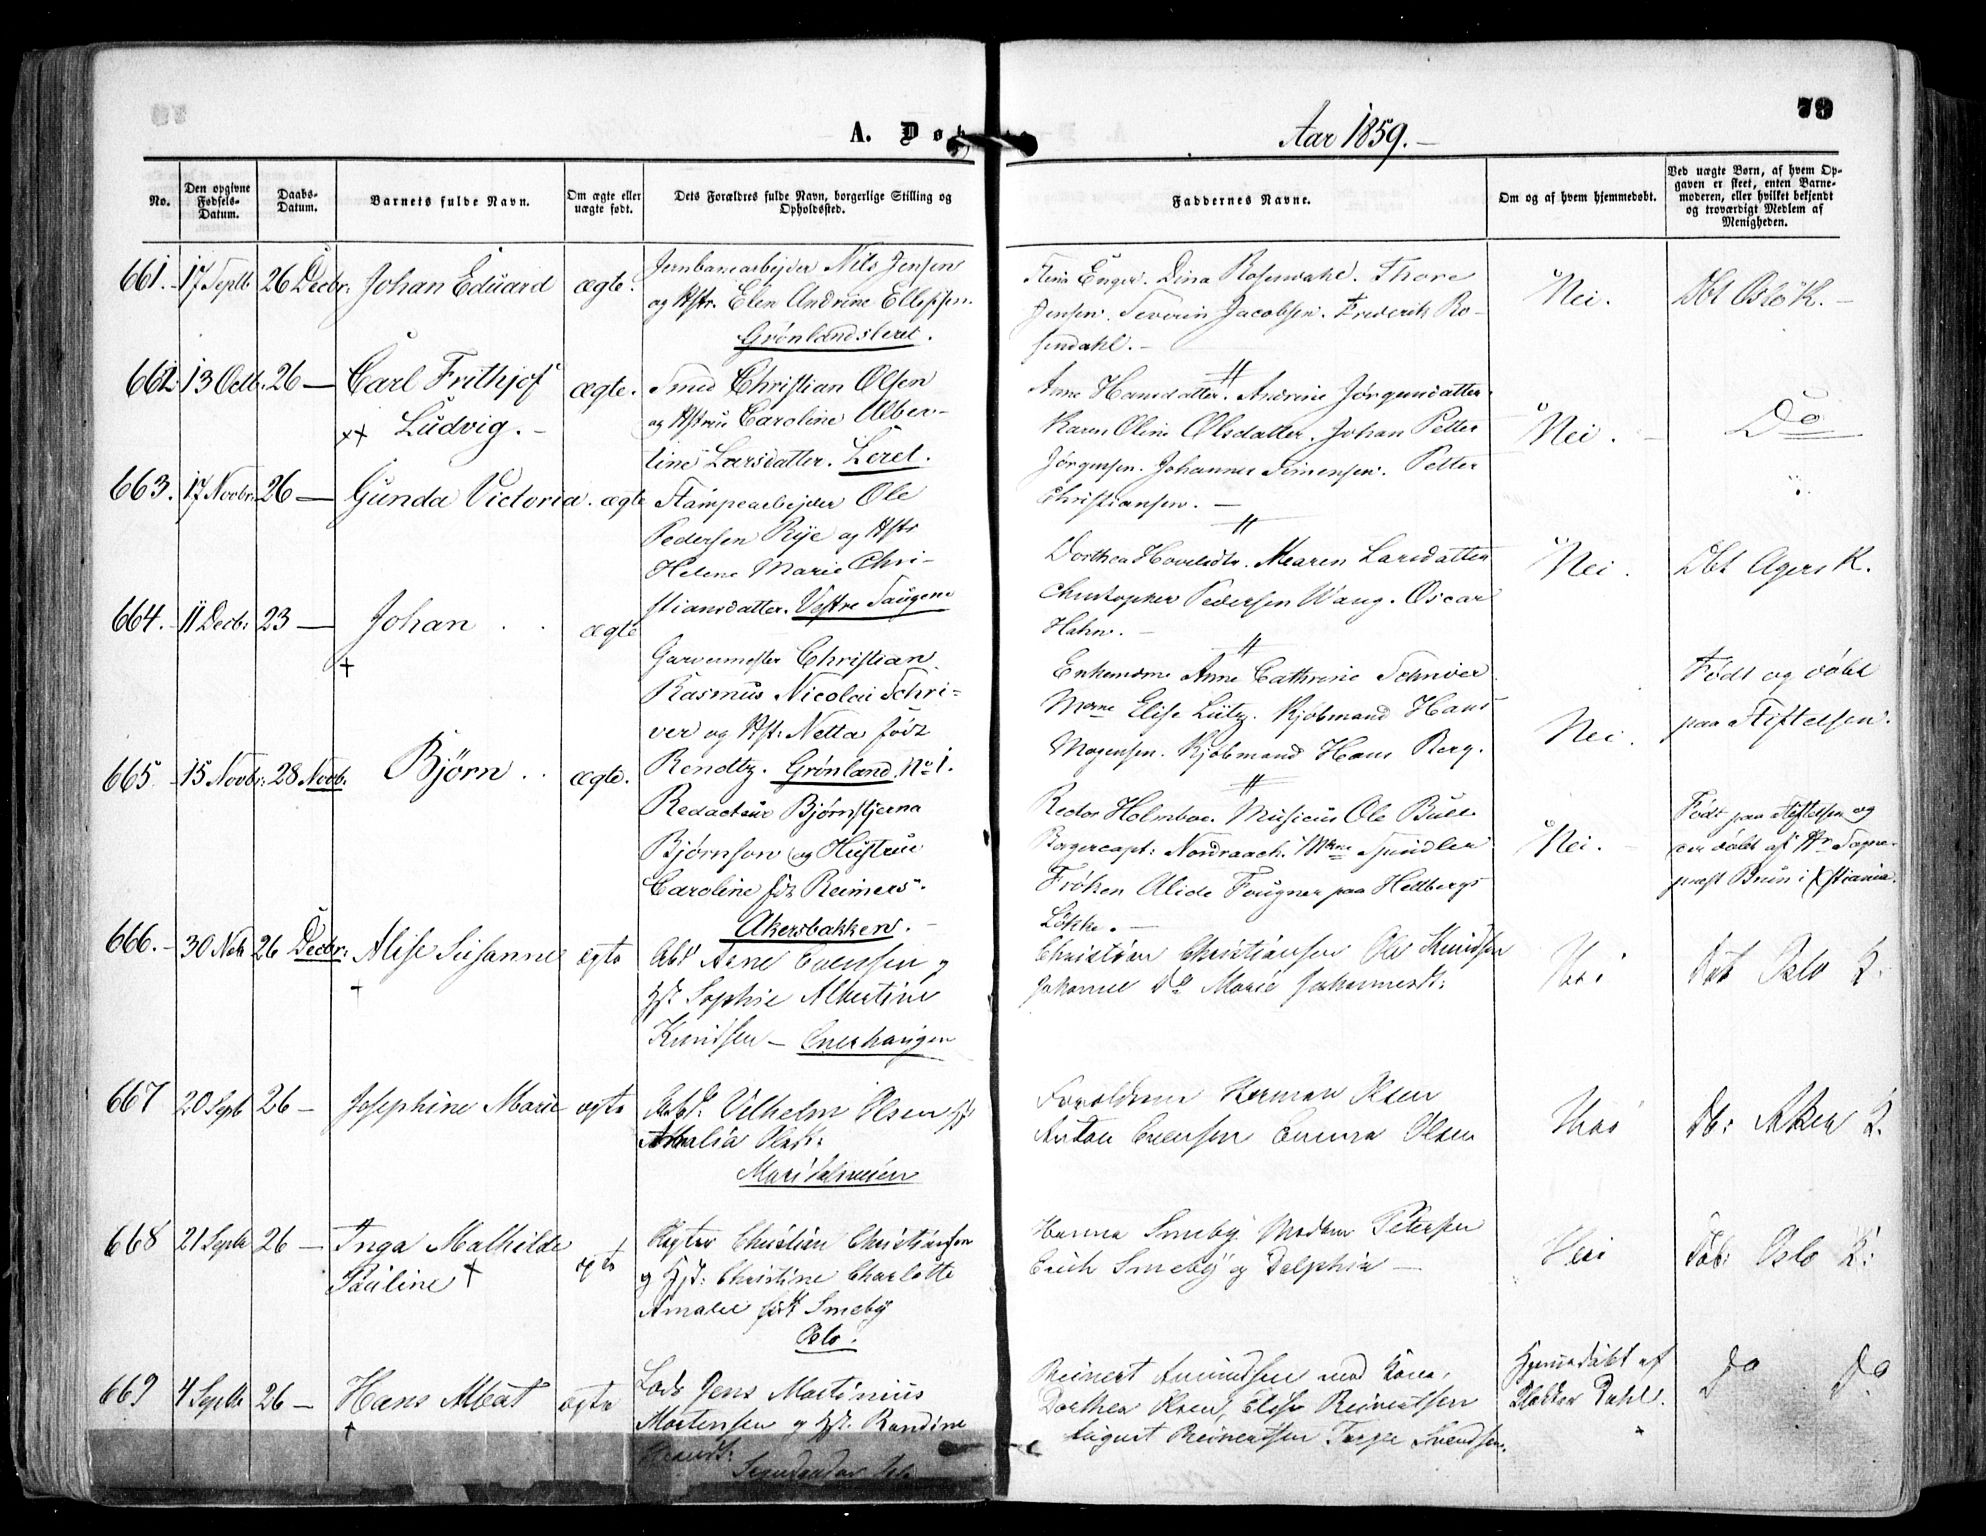 79
A. Døbte
Aar 1859.
No.
Den opgivne Fødsels-Datum.
Daabs-Datum.
Barnets fulde Navn.
Om ægte eller uægte født.
Dets Forældres fulde Navn, borgerlige Stilling og Opholdssted.
Faddernes Navne.
Om og af hvem hjemmedøbt.
Ved uægte Børn, af hvem Op-
gaven er skeet, enten Barne-
moderen, eller hvilket bekjendt
og troværdigt Medlem af
Menigheden.
661. 17 Septb 26 Decbr: Johan Eduard ægte.
Jernbanearbejder Nils Jensen
og Hstr. Elen Andrine Ellefsen.
Grønlandsleret.
Stina Enger. Dina Rosendahl. Thore
Jensen. Severin Jacobsen. Frederik Ro-
sendahl.
Nei. Dbt Oslo K.
662 13 Octb. 26 — Carl Frithjof
Ludvig. ægte.
Smed Christian Olsen
og Hstru Caroline Alber-
tine Larsdatter. Leret.
Anne Hansdatter. Andrine Jørgensdatter
Karen Oline Olsdatter. Johan Petter
Jørgensen. Johannes Simensen. Petter
Christiansen.
Nei. Do
663. 17 Novbr. 26 — Gunda Victoria. ægte
Stampearbejder Ole
Pedersen Rye og Hstr
Helene Marie Chri-
stiansdatter. Vestre Taugene
Dorthea Hovelsdtr. Maren Larsdatter
Christopher Pedersen Wang. Oscar
Hahn.
Nei. Dbt Agers K.
664. 11 Decbr: 23 — Johan ægte
Garvermester Christian
Rasmus Nicolai Schri-
ver og Hst: Netta født
Rendtz. Grønland No 1.
Enkemdme Anne Cathrine Schriver
Mdme Elise Lütz. Kjøbmand Hans
Mogensen. Kjøbmand Hans Berg.
Nei. Født og døbt
paa Stiftelsen.
665 15 Novbr: 28 Novb. Bjørn. ægte.
Redacteur Bjørnstjerna
Bjørnson og Hustrue
Caroline fdt Reimers.
Akersbakken.
Rector Holmboe. Musicus Ole Bull
Borgercapt: Nordraach. Mdme Tündler
Frøken Alide Fougner paa Heltbergs
Løkke.
Nei. Født paa Stiftelsen og
er døbt af Hr Sogne-
præst Bruun i Xstiania.
666. 30 26 Decbr: Alise Susanne ægte
Arbd Arne Evensen og
Hst Sophie Albertine
Knudsen — Enerhaugen
Christian Christiansen Ole Knudsen
Johannes Do Marie Johannesdt:
Nei Døbt Oslo K.
667 20 Septb 26 — Josephine Marie ægte
Arbd: Vilhelm Olsen Hst
Amalia Olsdt:
Maridalsveien
Forældrene Herman Olsen
Anton Evensen Emma Olsen
Nei Db: Aker K.
668 21 Septb 26 — Inga Mathilde
Pauline ægte
Rigter Christian Christiansen
og Hst: Christine Charlotte
Amalie født Smeby
Oslo.
Hanna Smeby Madam Petersen
Erich Smeby og Delphin —
Nei Døb: Oslo K:
669 4 Septb 26 — Hans Albert ægte
Lods Jens Martinius
Mortensen og Hst. Randine
Reinert Amundsen med Kone,
Dorthea Olsen, Elise Reinertsen
August Reinertsen Terje Svendsen.
Hjemmedøbt af
Doktor Dahl.
Do Do